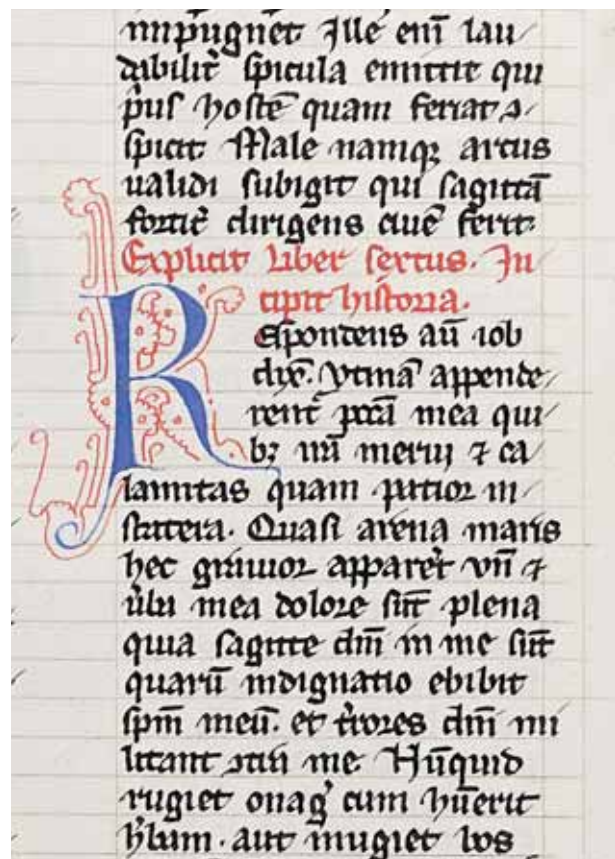 impugnet Ille enī lau/
dabilit̉ spicula emittit qui
p̉us hostē quam feriat ɔ/
spicit Male namqꝫ arcus
ualidi subigit qui sagittā
fortit̉ dirigens ciuē ferit.
Explicit liber sextus. In
cipit historia.
Respondens aū iob
dix̄. Vtinā appende/
rent̉ pccā mea qui/
bꝫ irā merui ⁊ ca/
lamitas quam patior in/
statera. Quasi arena maris
hec grauior apparet̉ vn̄ ⁊
ū̉ba mea dolore sūt plena
quia sagitte dn̄i in me sūt
quarū indignatio ebibit
spm̄ meū. et t̉rores dn̄i mi/
litant ɔtra me. Nūquid
rugiet onag̉ cum hūerit
h̉bam. aut mugiet bos